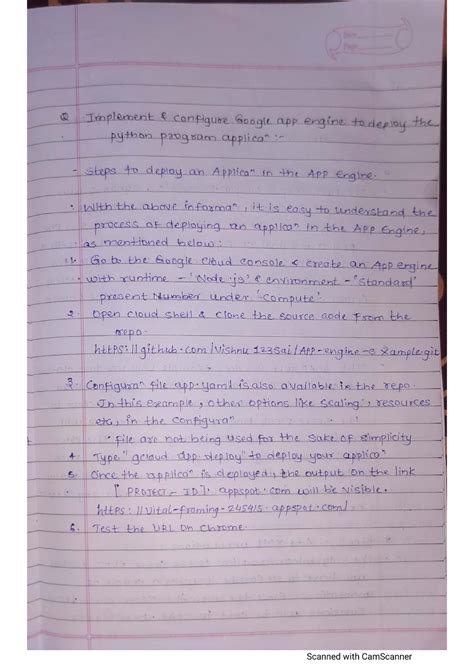 Date
Page
Q Implement & configure Google app engine to deploy the
python program applicaⁿ :-
- Steps to deploy an Applicaⁿ in the App Engine.
• With the above informaⁿ, it is easy to understand the
process of deploying an applicaⁿ in the App Engine,
as mentioned below:
1. Go to the Google cloud console & create an App engine
with runtime - 'Node.js' & environment - 'Standard'
present Number under 'Compute'.
2. Open cloud shell & clone the source code from the
repo.
https://github.com/Vishnu123sai/App-engine-example.git
3. Configuraⁿ file app.yaml is also available in the repo.
In this example, other options like scaling, resources
etc, in the configuraⁿ
• file are not being used for the sake of simplicity
4. Type "gcloud app deploy" to deploy your applicaⁿ
5. Once the applicaⁿ is deployed, the output on the link
[PROJECT-ID].appspot.com will be visible.
https://vital-framing-245415.appspot.com/
6. Test the URL on chrome.
Scanned with CamScanner